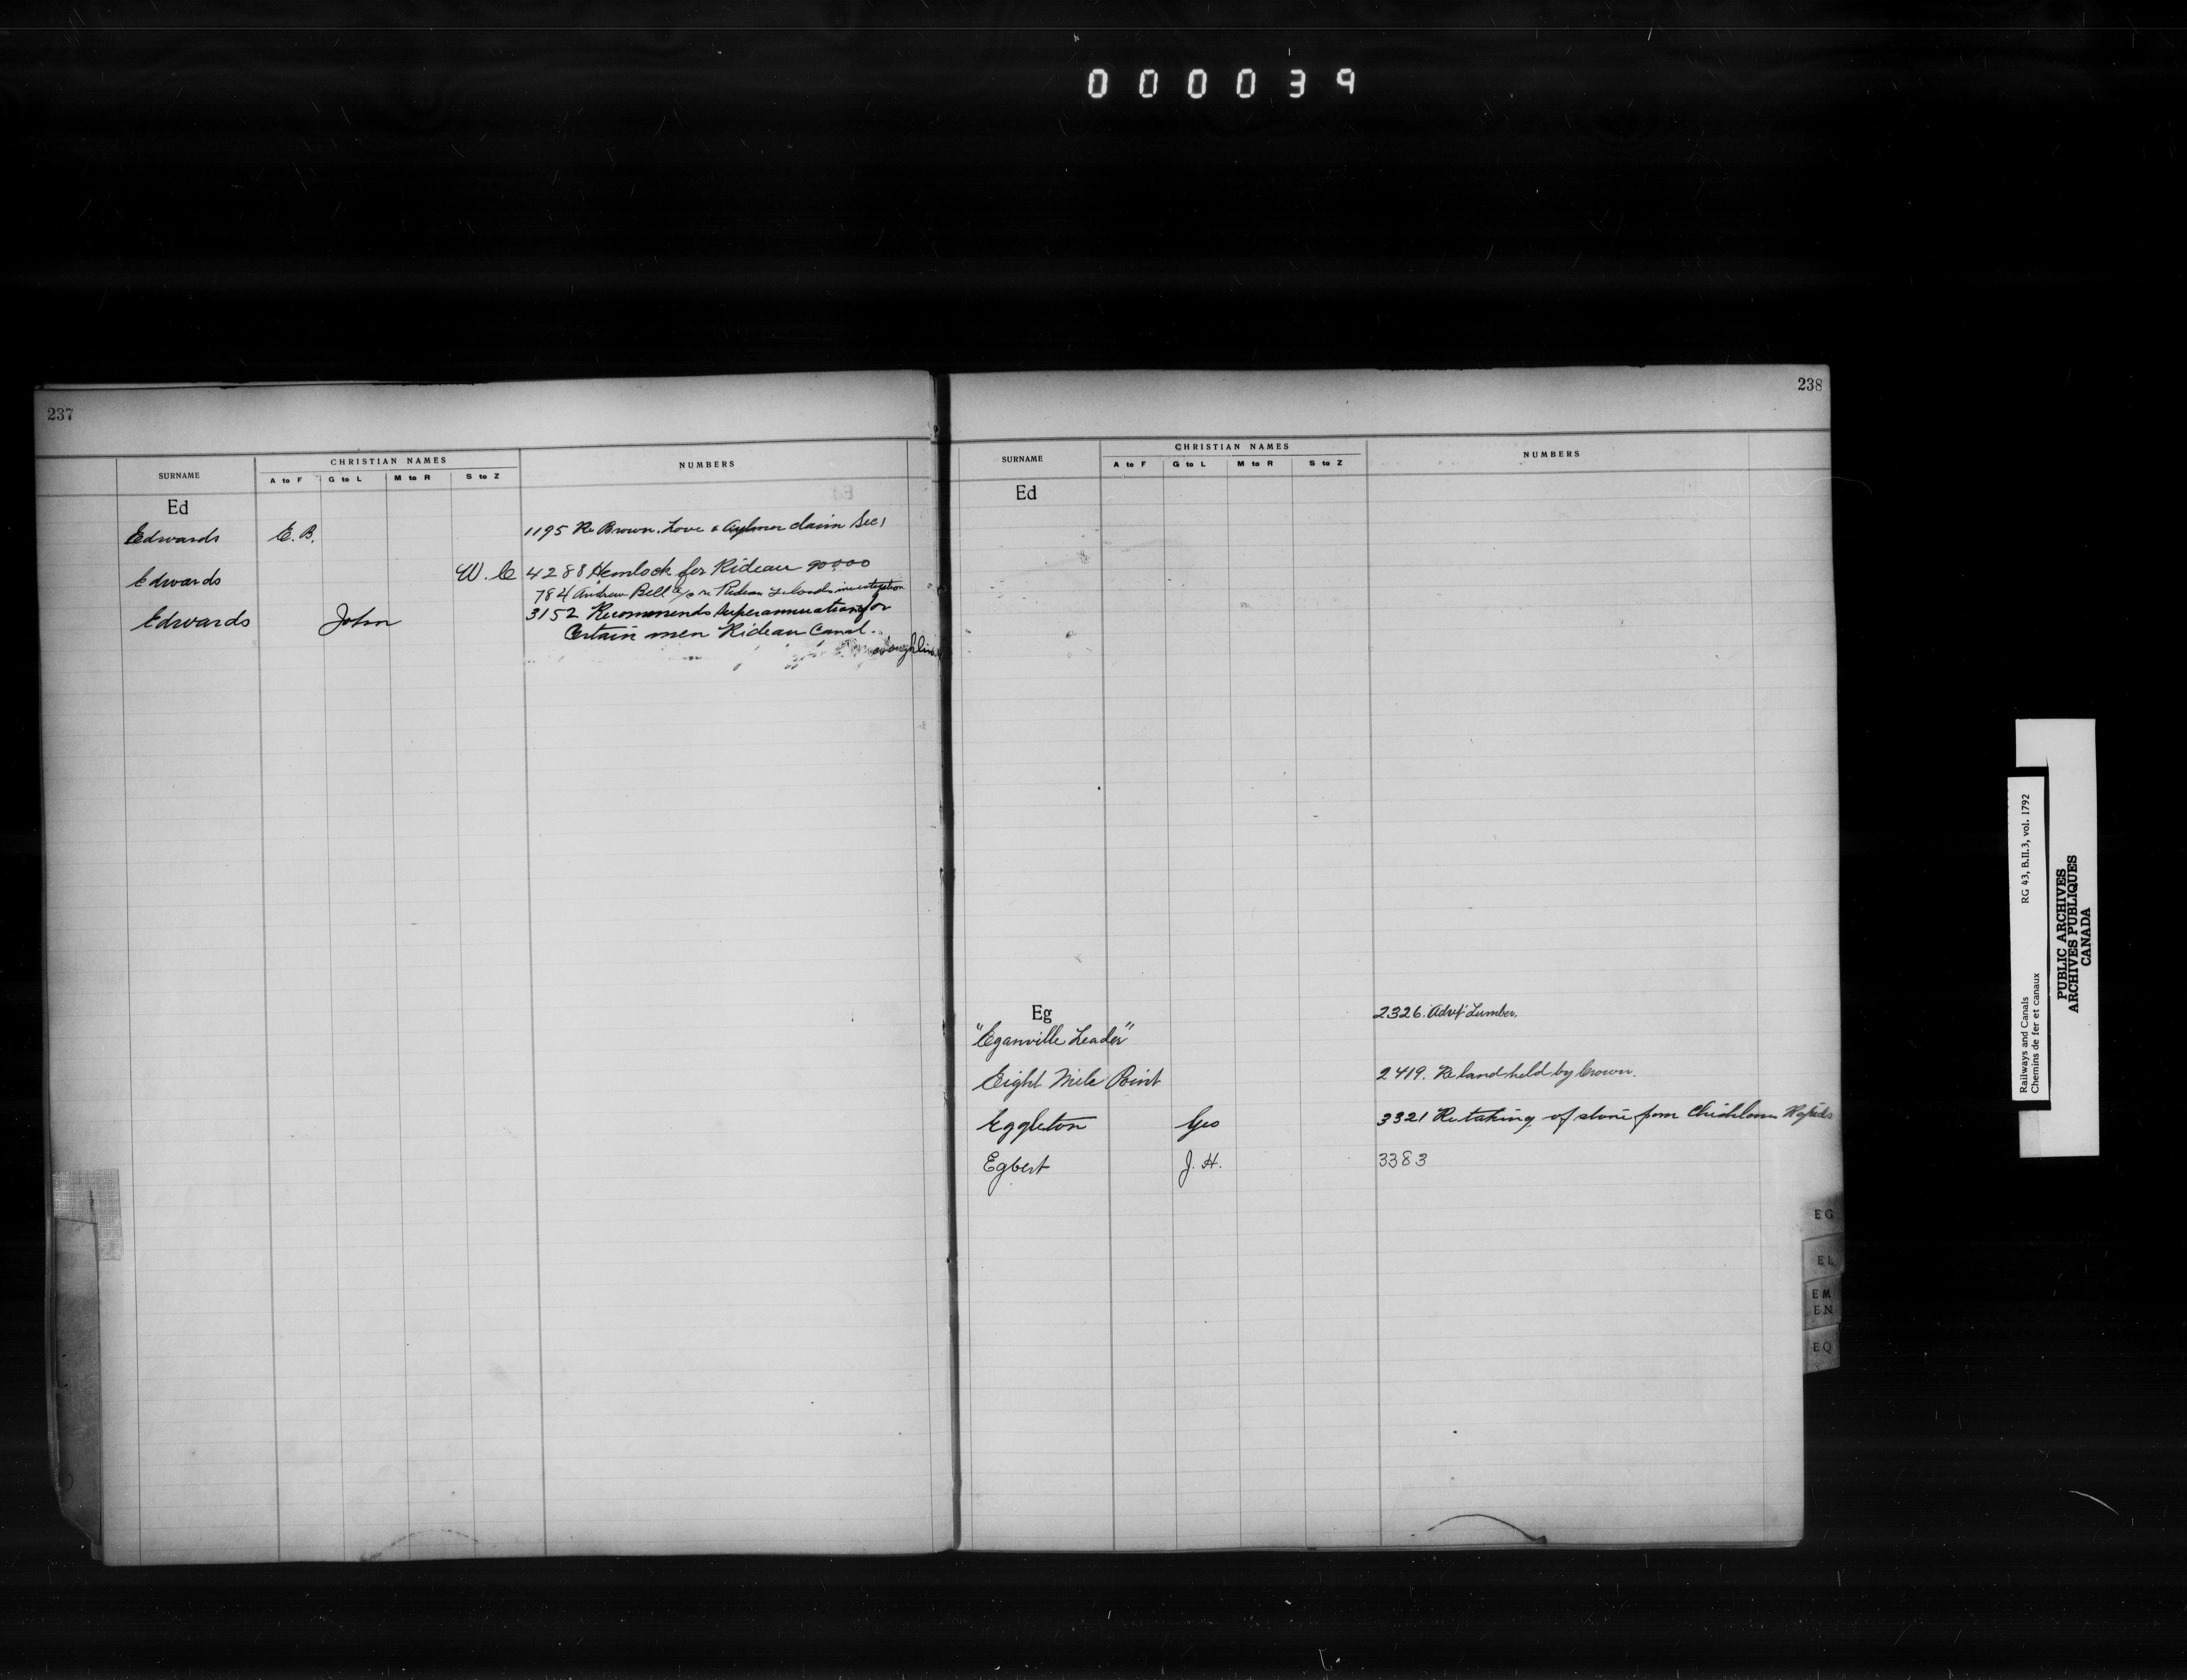 000039
237
SURNAME
CHRISTIAN NAMES
A to F G to L M to R S to Z
NUMBERS
Ed
Edwards E. B. 1195 Re Brown, Love & Aylmer claim Sec 1
Edwards W. C 4288 Hemlock for Rideau 90000
784 Andrew Bell re Rideau investigation
Edwards John 3152 Recommends Superannuation for
Certain men Rideau Canal.
238
SURNAME
CHRISTIAN NAMES
A to F G to L M to R S to Z
NUMBERS
Ed
Eg
2326. Advt Lumber.
"Eganville Leader"
Eight Mile Point 2419. Re land held by Crown.
Eggleton Geo 3321 Re taking of stone from Rapids
Egbert J. H. 3383
EG
EL
EM
EN
EQ
Railways and Canals RG 43, B.II.3, vol. 1792
Chemins de fer et canaux
PUBLIC ARCHIVES
ARCHIVES PUBLIQUES
CANADA